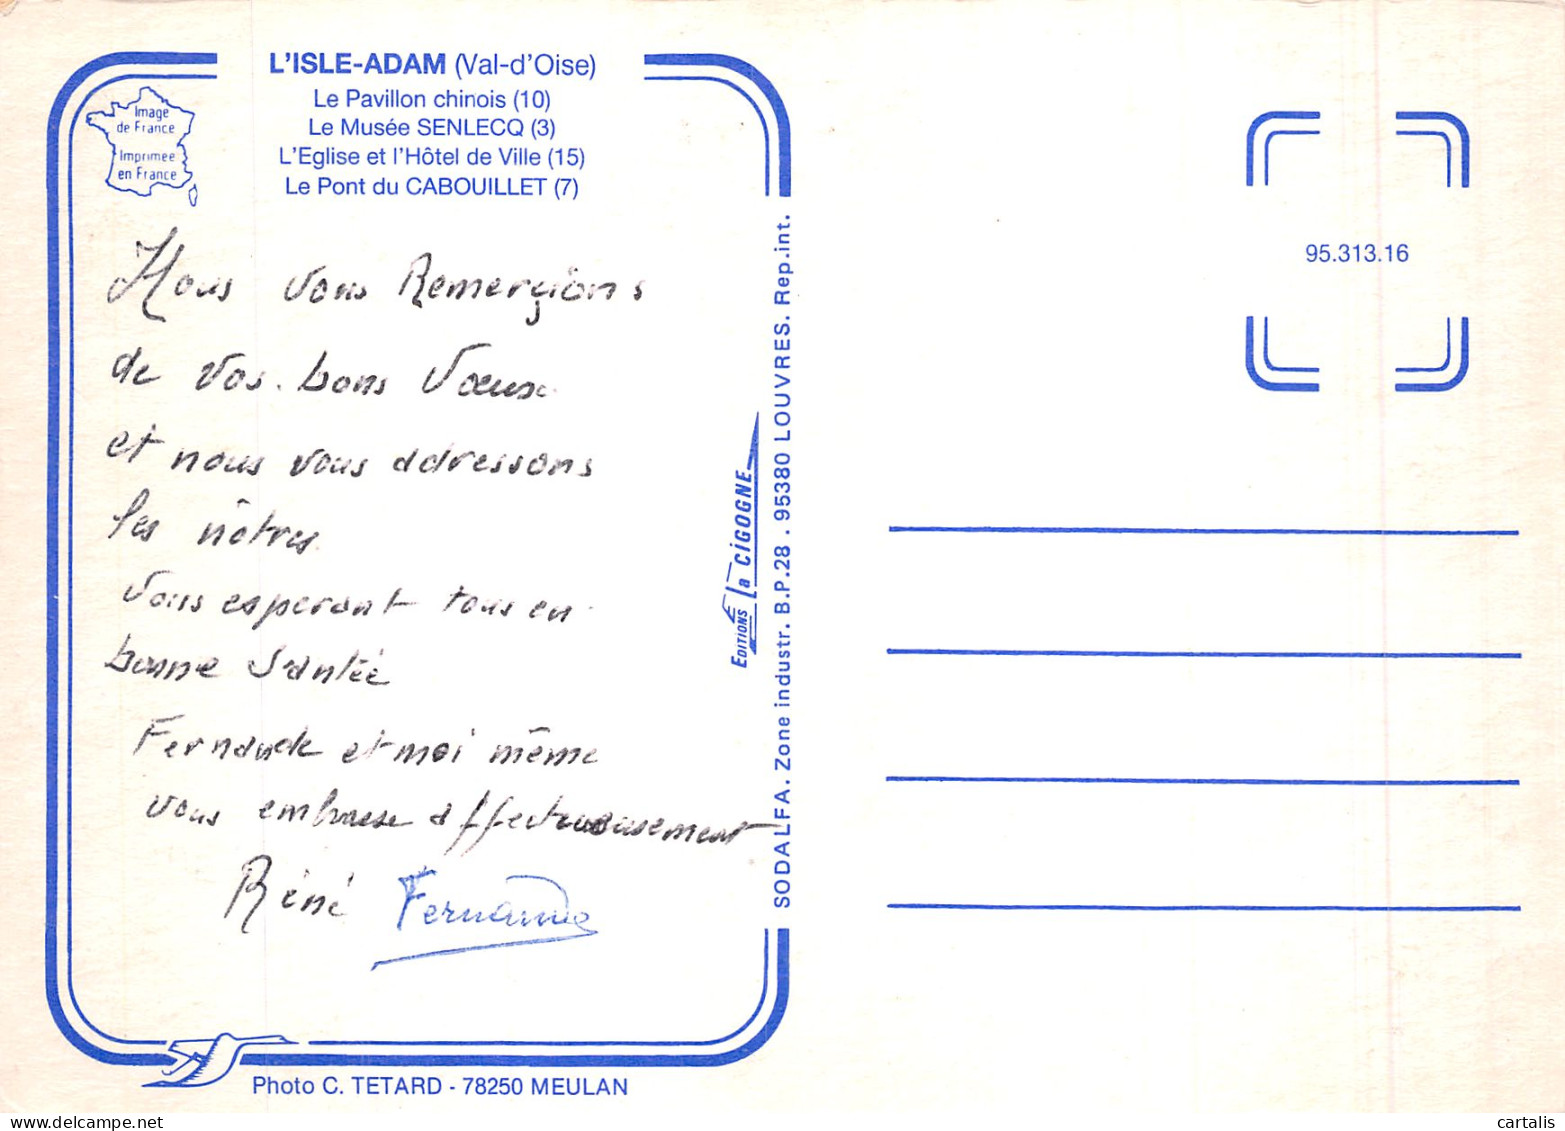 L'ISLE-ADAM (Val-d'Oise)
Le Pavillon chinois (10)
Le Musée SENLECQ (3)
L'Eglise et l'Hôtel de Ville (15)
Le Pont du CABOUILLET (7)
Image
de France
Imprimée
en France
Nous vous Remerçions
de vos bons Vœux
et nous vous adressons
les nôtres
Vous esperant tous en
bonne Santée
Fernande et moi même
vous embrasse affectueusement
Réné Fernande
Photo C. TETARD - 78250 MEULAN
EDITIONS La CIGOGNE
SODALFA. Zone industr. B.P.28 . 95380 LOUVRES. Rep.int.
95.313.16
cartalis